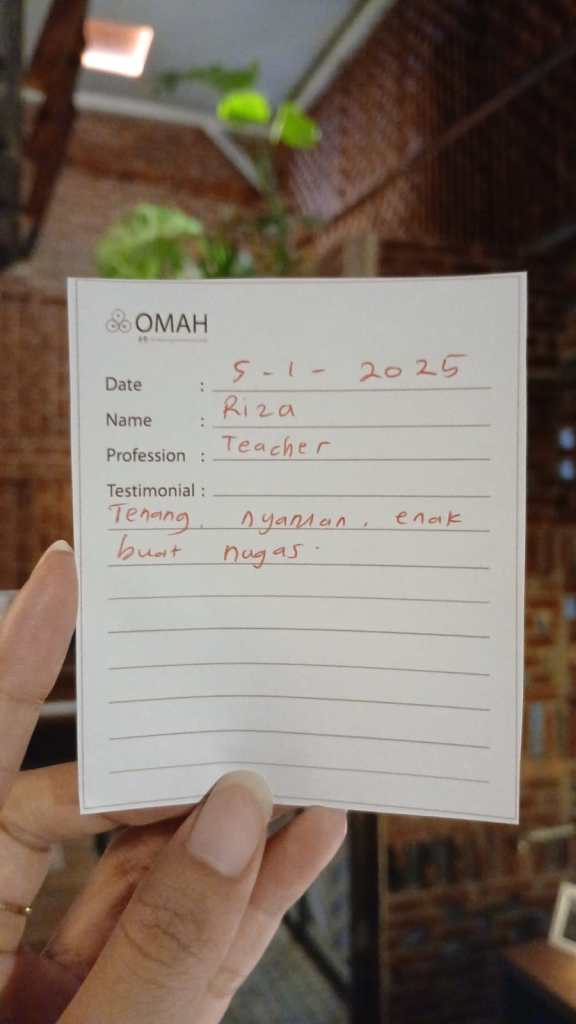 OMAH
Date : 5 - 1 - 2025
Name : Riza
Profession : Teacher
Testimonial :
Tenang, nyaman, enak
buat nugas.